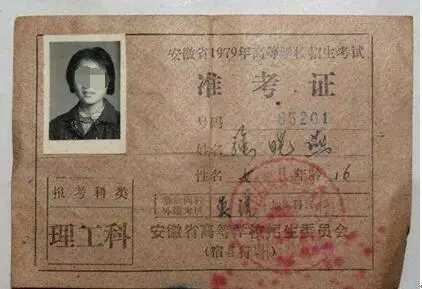 安徽省1979年高等学校招生考试
准考证
号码 65201
姓名 晓燕
性名 女 年龄 16
报考科类
理工科
英语
安徽省高等学校招生委员会